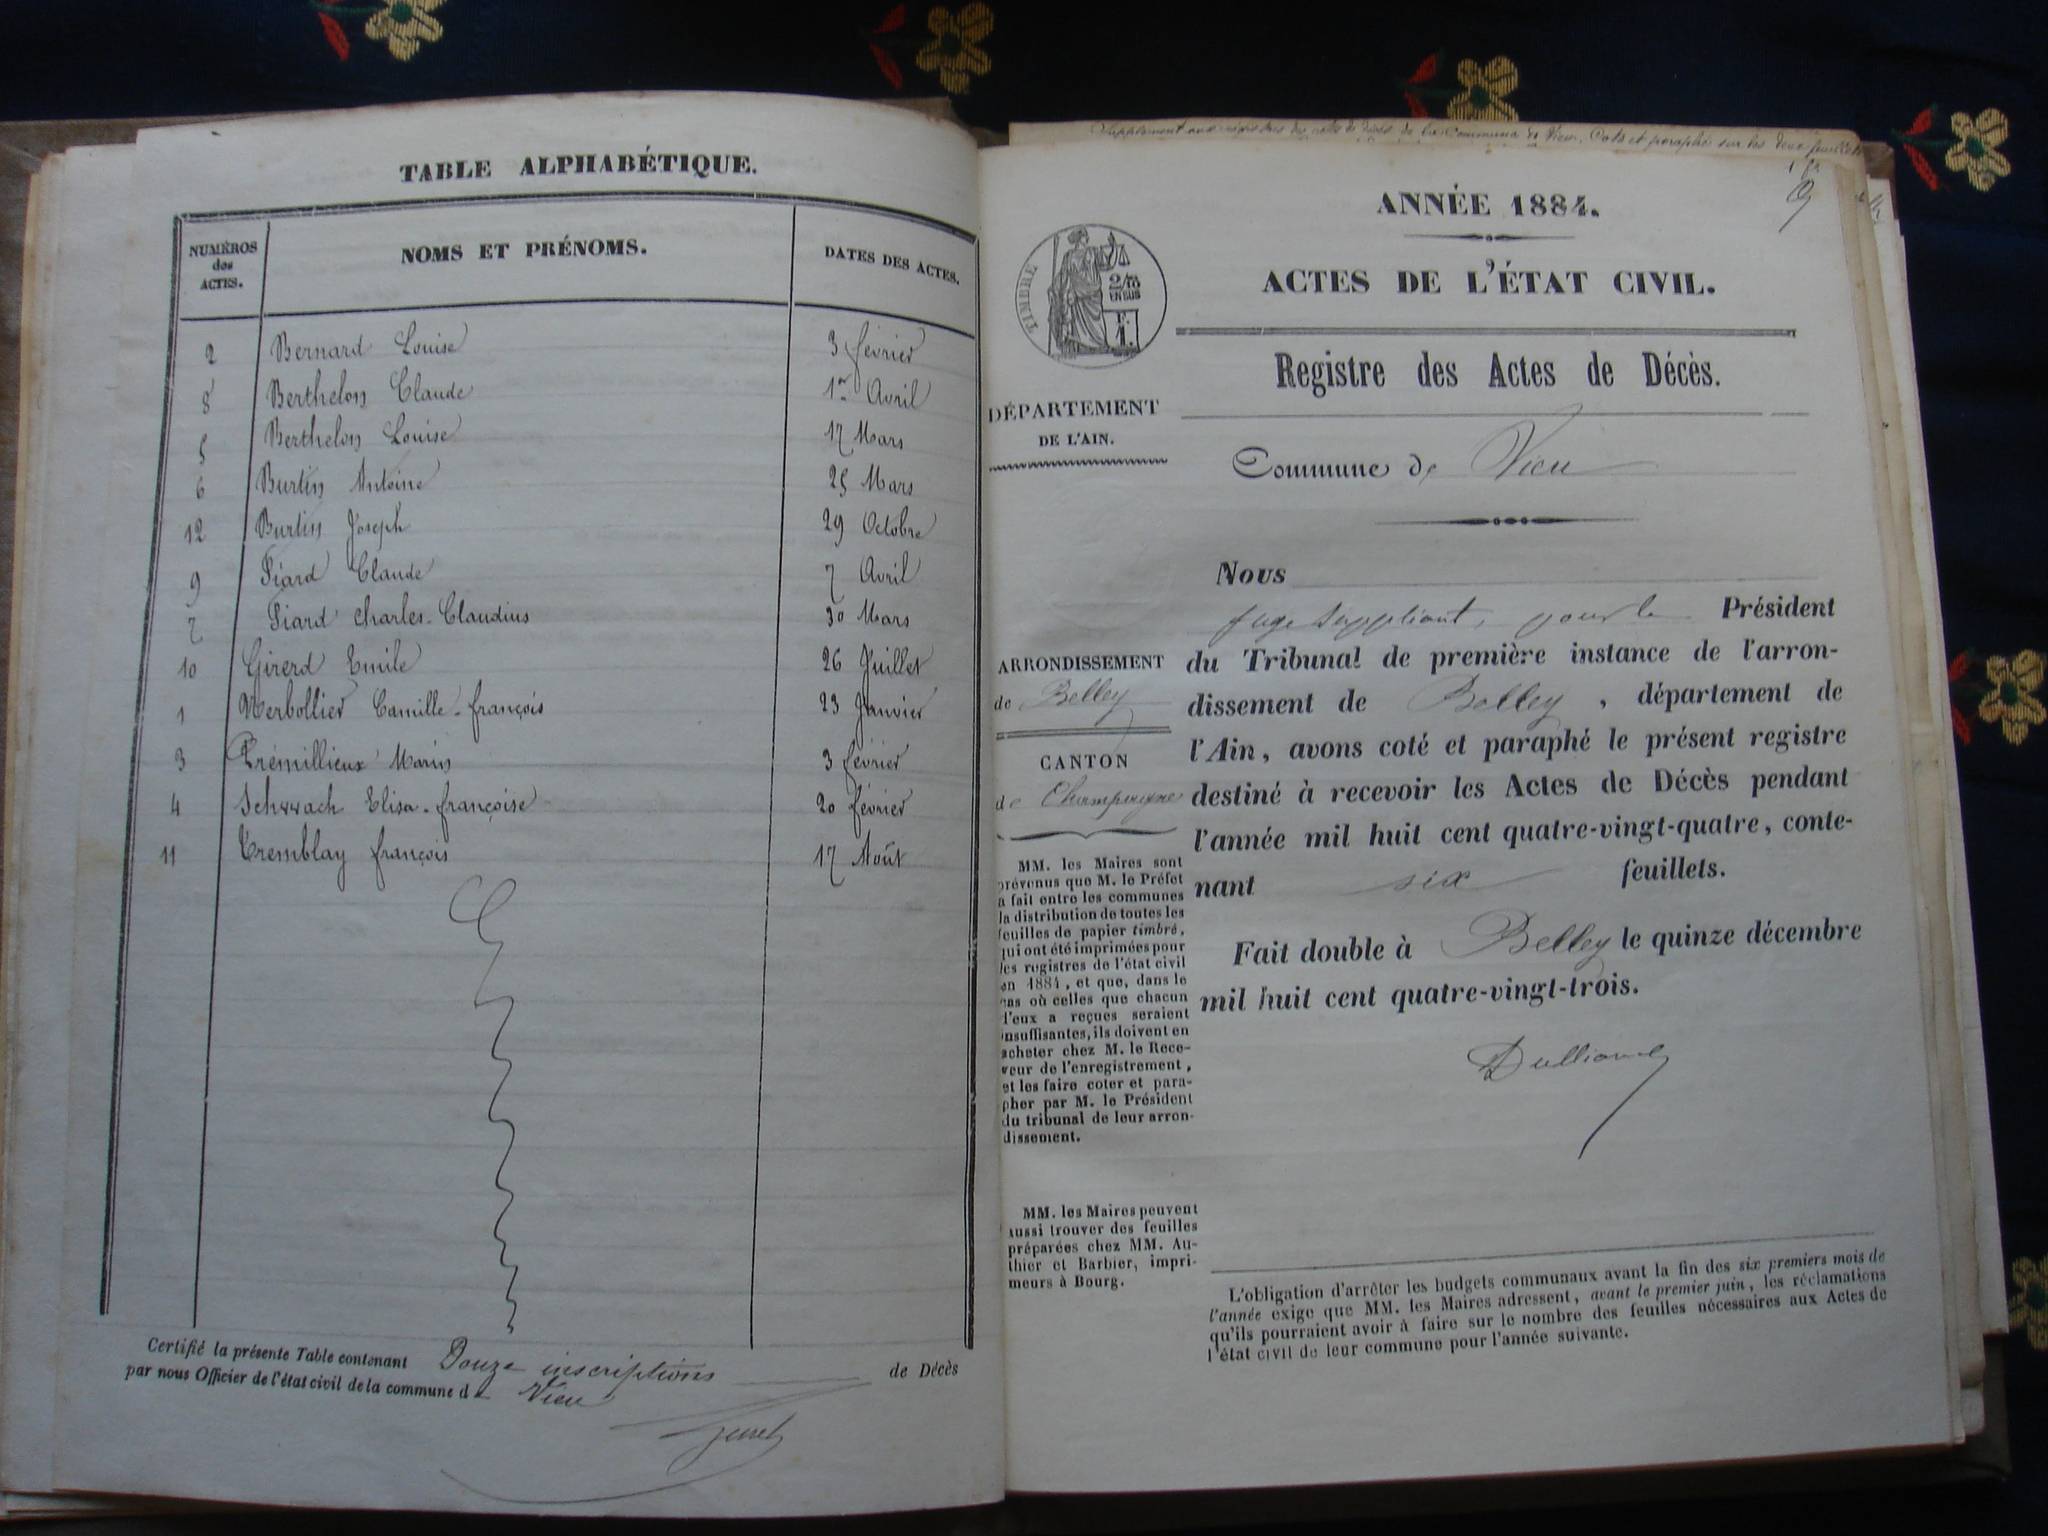 TABLE ALPHABÉTIQUE.
NUMÉROS des ACTES. NOMS ET PRÉNOMS. DATES DES ACTES.
2 Bernard Louise 3 février
8 Berthelon Claude 1er Avril
5 Berthelon Louise 17 Mars
6 Burtin Antoine 25 Mars
12 Burtin Joseph 29 Octobre
9 Fiard Claude 7 Avril
7 Fiard Charles-Claudius 30 Mars
10 Girerd Emile 26 Juillet
1 Merbollier Camille-françois 23 Janvier
3 Prémillieux Marin 3 février
4 Schwach Elisa-françoise 20 février
11 Tremblay françois 17 Août
Certifié la présente Table contenant Douze inscriptions de Décès
par nous Officier de l'état civil de la commune de Vieu
Supplément aux registres des actes de décès de la Commune de Vieu. Coté et paraphé sur les deux feuillets
ANNÉE 1884.
ACTES DE L'ÉTAT CIVIL.
TIMBRE
2/10
EN SUS
F.
1.
Registre des Actes de Décès.
DÉPARTEMENT
DE L'AIN.
Commune de Vieu
Nous
juge suppléant, pour le Président
du Tribunal de première instance de l'arron-
dissement de Belley, département de
l'Ain, avons coté et paraphé le présent registre
destiné à recevoir les Actes de Décès pendant
l'année mil huit cent quatre-vingt-quatre, conte-
nant six feuillets.
Fait double à Belley le quinze décembre
mil huit cent quatre-vingt-trois.
ARRONDISSEMENT
de Belley
CANTON
de Champagne
MM. les Maires sont
prévenus que M. le Préfet
a fait entre les communes
la distribution de toutes les
feuilles de papier timbré,
qui ont été imprimées pour
les registres de l'état civil
en 1884, et que, dans le
cas où celles que chacun
d'eux a reçues seraient
insuffisantes, ils doivent en
acheter chez M. le Rece-
veur de l'enregistrement,
et les faire coter et para-
pher par M. le Président
du tribunal de leur arron-
dissement.
MM. les Maires peuvent
aussi trouver des feuilles
préparées chez MM. Au-
thier et Barbier, impri-
meurs à Bourg.
L'obligation d'arrêter les budgets communaux avant la fin des six premiers mois de
l'année exige que MM. les Maires adressent, avant le premier juin, les réclamations
qu'ils pourraient avoir à faire sur le nombre des feuilles nécessaires aux Actes de
l'état civil de leur commune pour l'année suivante.